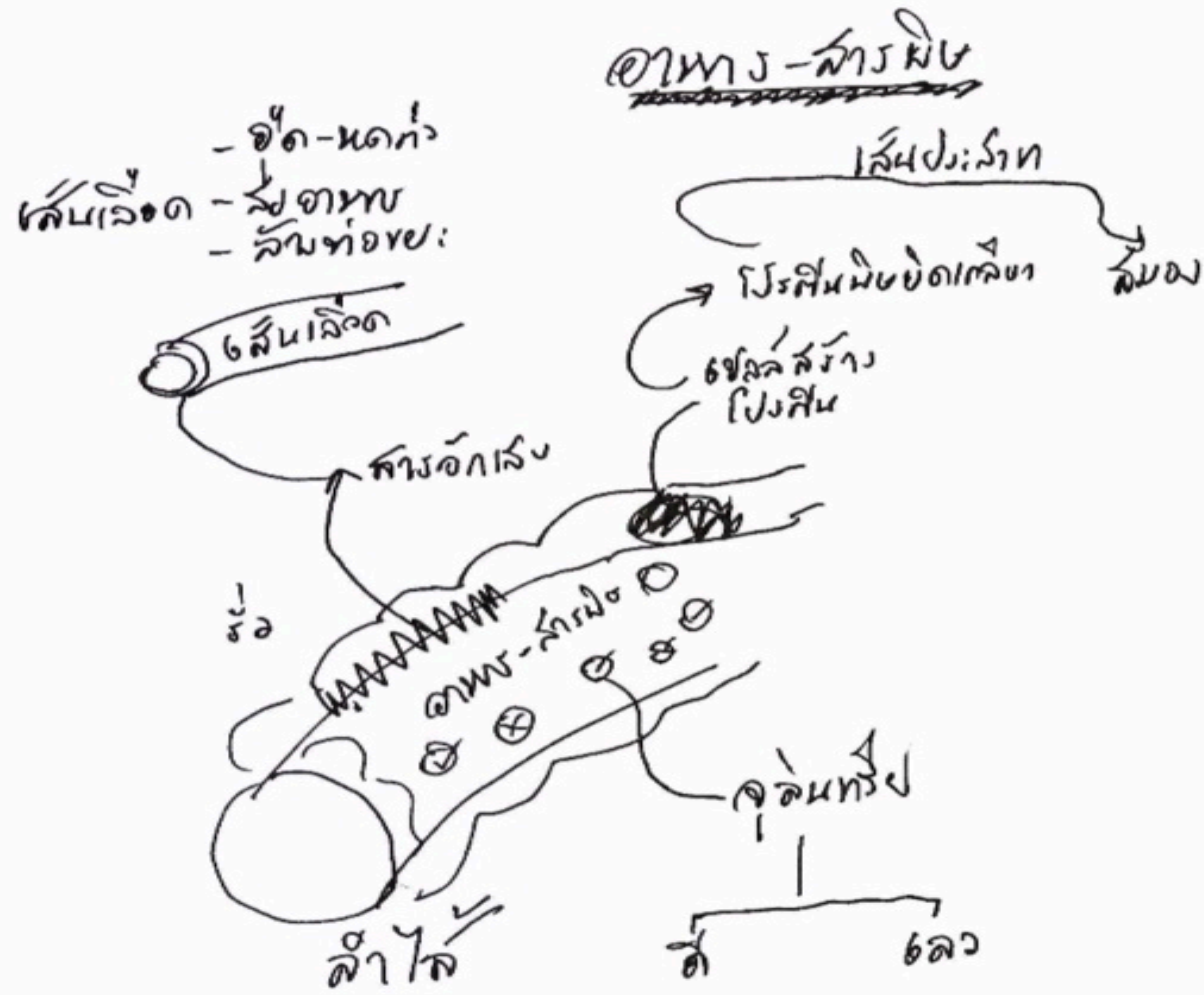 อาหาร-สารพิษ
- ยืด-หดตัว
เส้นเลือด - ส่งอาหาร
- ล้างท่อขยะ
เส้นประสาท
โปรตีนพิษยึดเกลียว
สมอง
เส้นเลือด
เซลล์สร้าง
โปรตีน
สารอักเสบ
รั่ว
อาหาร-สารพิษ
จุลินทรีย์
ลำไส้
ดี
เลว